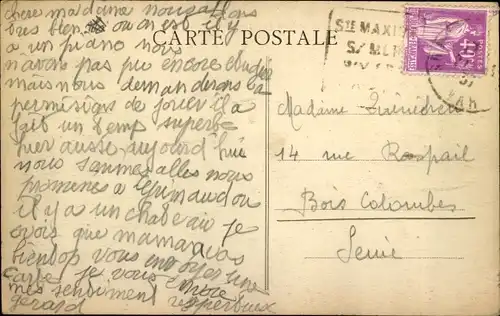 Chere madame nous allons
tres bien ou on est il y
a un piano nous
navons pas pu encore etudier
mais nous demanderons la
permission de jouer il a
fait un temp superbe
hier aussi aujourd huie
nous sommes alles nous
promenes a Grimaud ou
il y a un chateau je
crois que maman vas
bientot vous envoyer une
carte je vous envoie
mes sentiment respectueux
gerard
CARTE POSTALE
STE MAXI
S/ MER
VAR
POSTES
Madame
14 rue Raspail
Bois Colombes
Seine